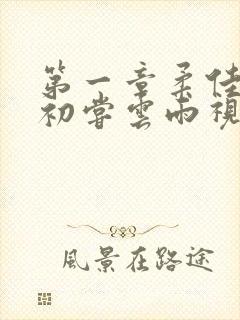 第一章柔佳
初嘗雲雨視
風景在路途